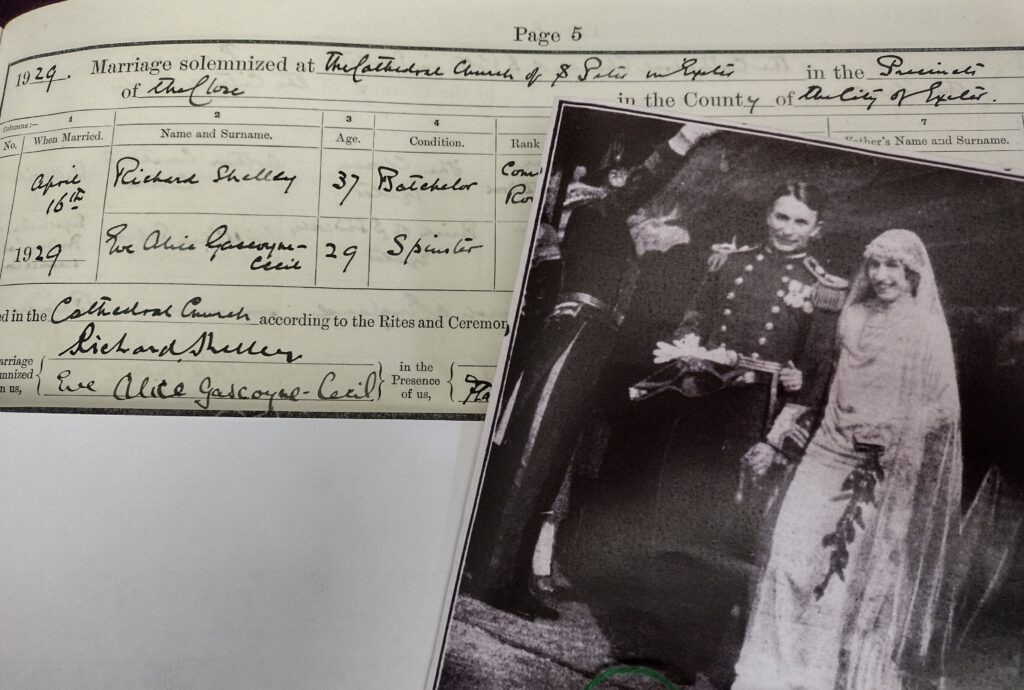 Page 5
1929. Marriage solemnized at The Cathedral Church of S Peter in Exeter in the Precincts
of the Close in the County of the City of Exeter.
Columns :— 1 2 3 4 7
No. When Married. Name and Surname. Age. Condition. Rank Father's Name and Surname.
April 16th Richard Shelley 37 Batchelor
1929 Eve Alice Gascoyne-Cecil 29 Spinster
ed in the Cathedral Church according to the Rites and Ceremon
Richard Shelley
arriage
mnized
n us,
Eve Alice Gascoyne-Cecil
in the
Presence
of us,